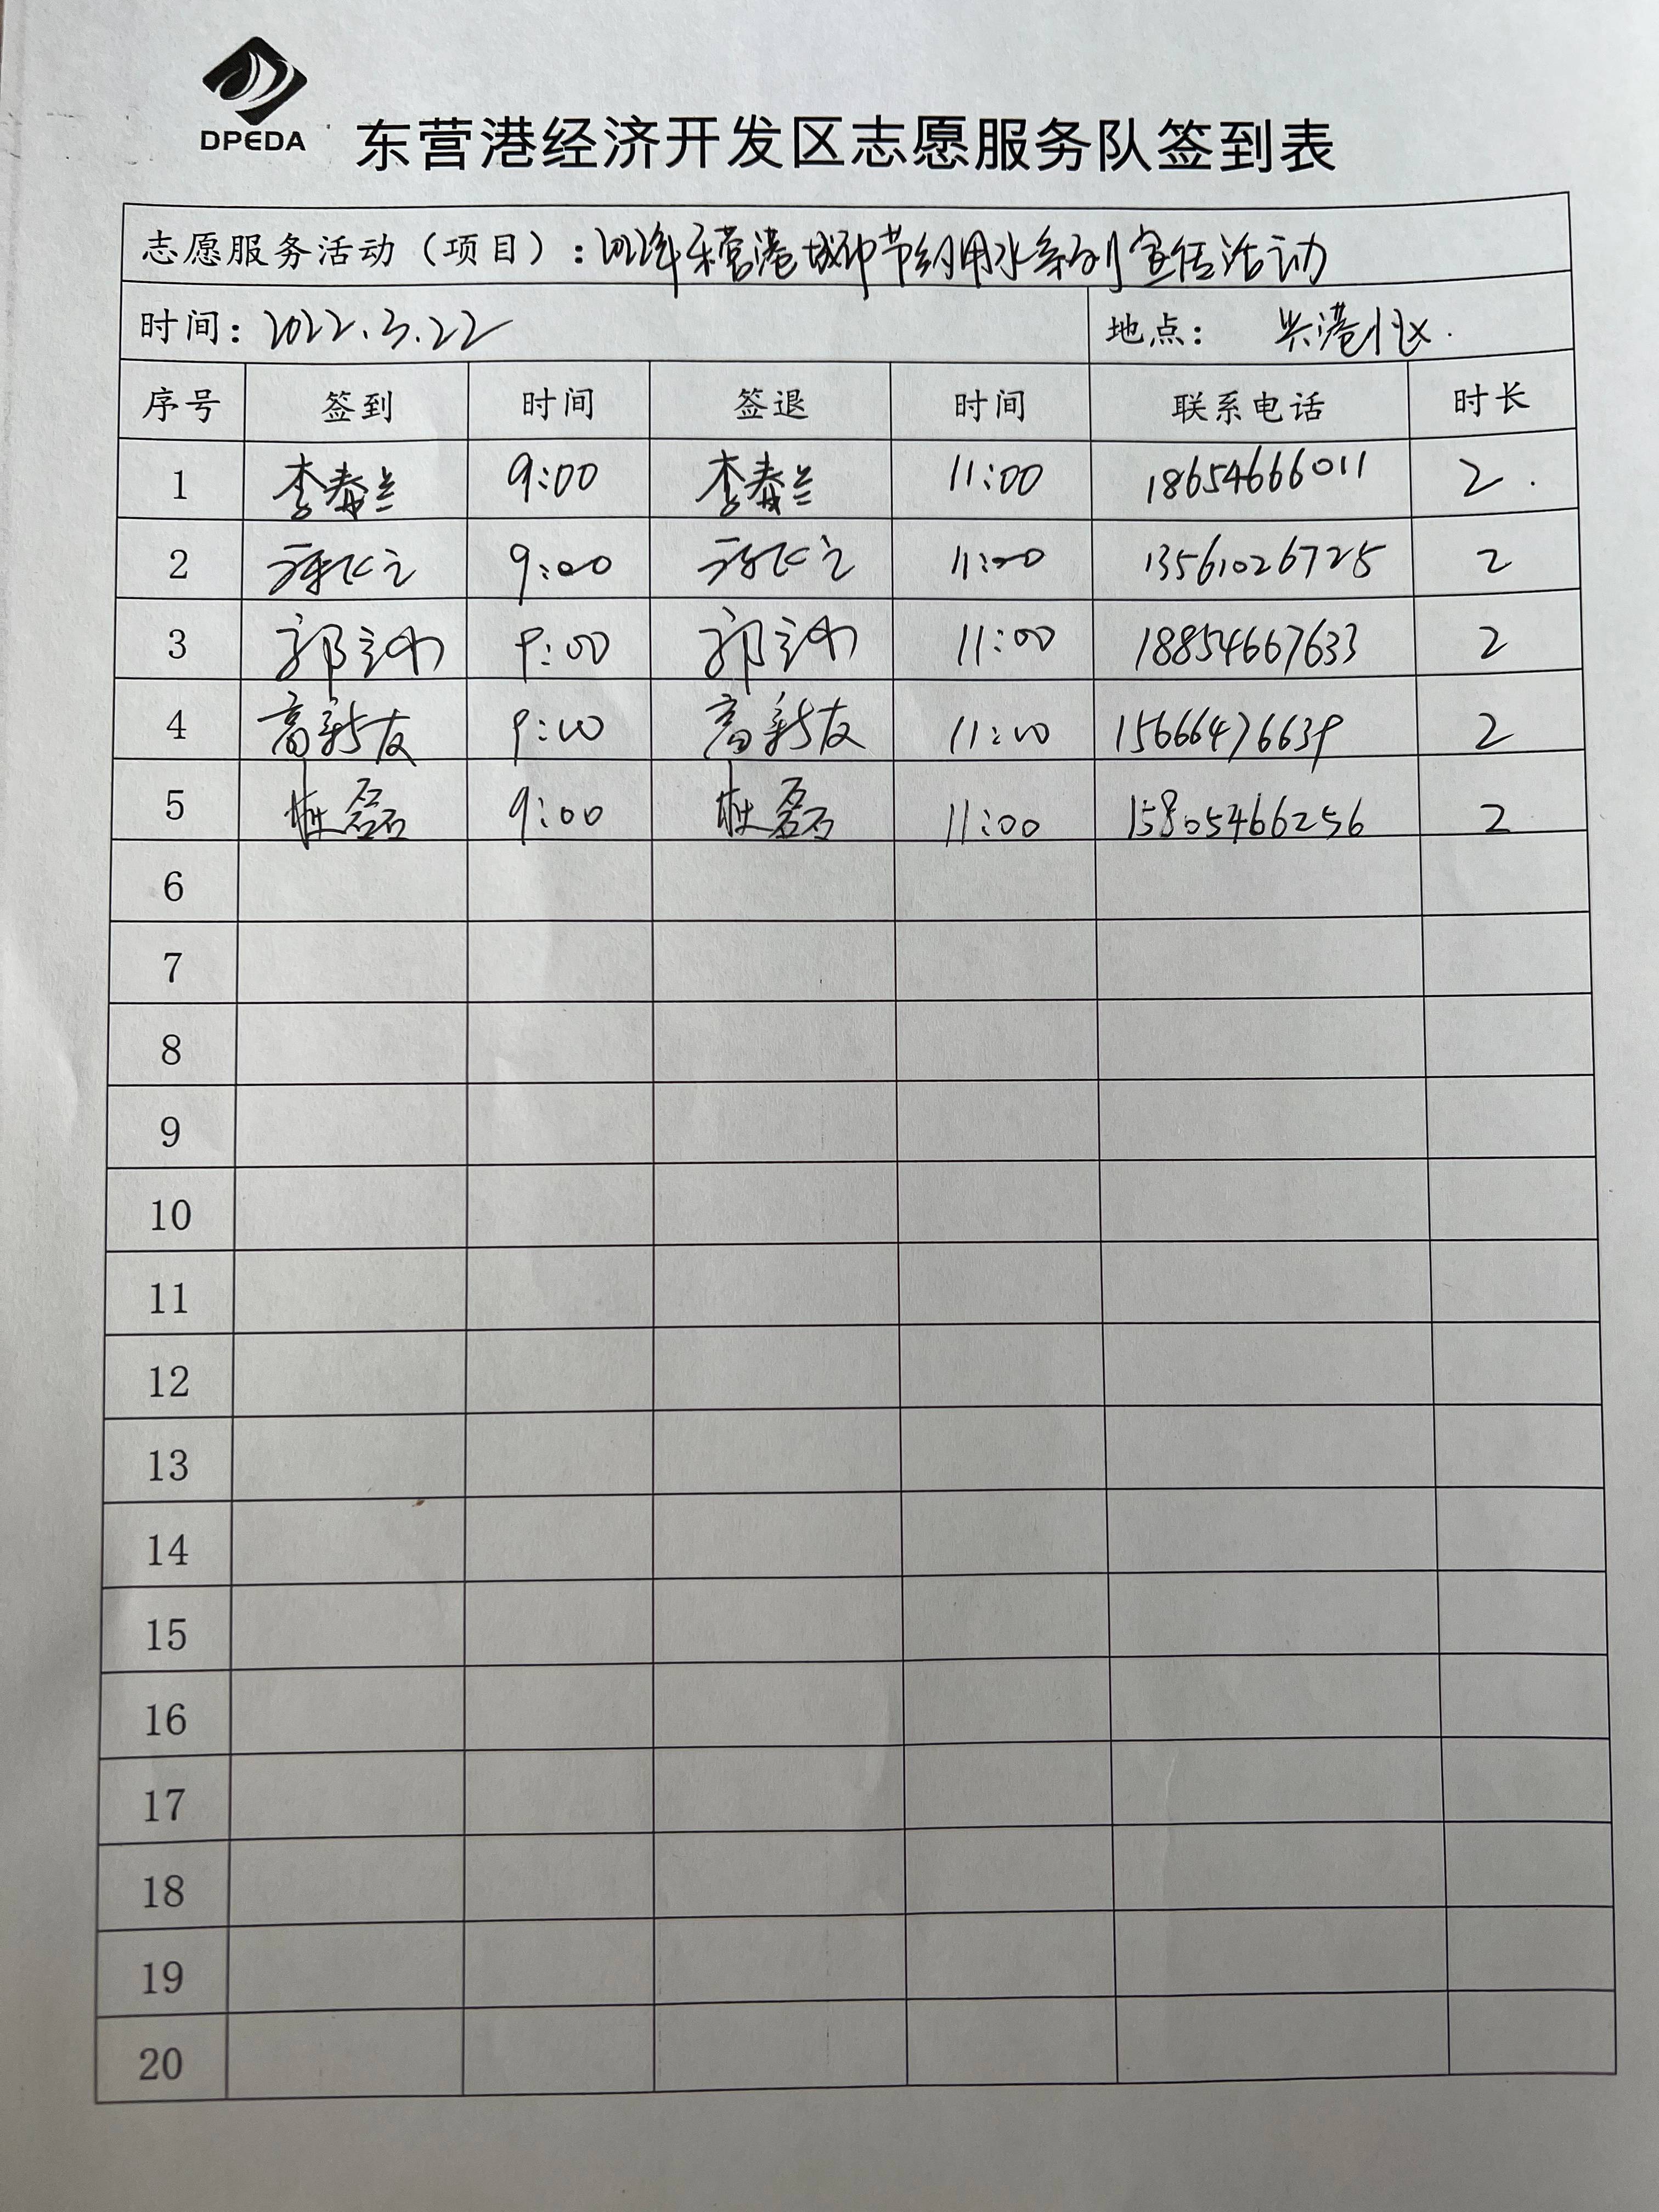 DPEDA
东营港经济开发区志愿服务队签到表
志愿服务活动（项目）：2022年东营港城市节约用水系列宣传活动
时间：2022.3.22 地点：兴港小区.
序号 签到 时间 签退 时间 联系电话 时长
1 李春兰 9:00 李春兰 11:00 18654666011 2.
2 9:00 11:00 13561026725 2
3 郭 9:00 郭 11:00 18854667633 2
4 高新友 9:00 高新友 11:00 15666476639 2
5 杜磊 9:00 杜磊 11:00 15805466256 2
6
7
8
9
10
11
12
13
14
15
16
17
18
19
20